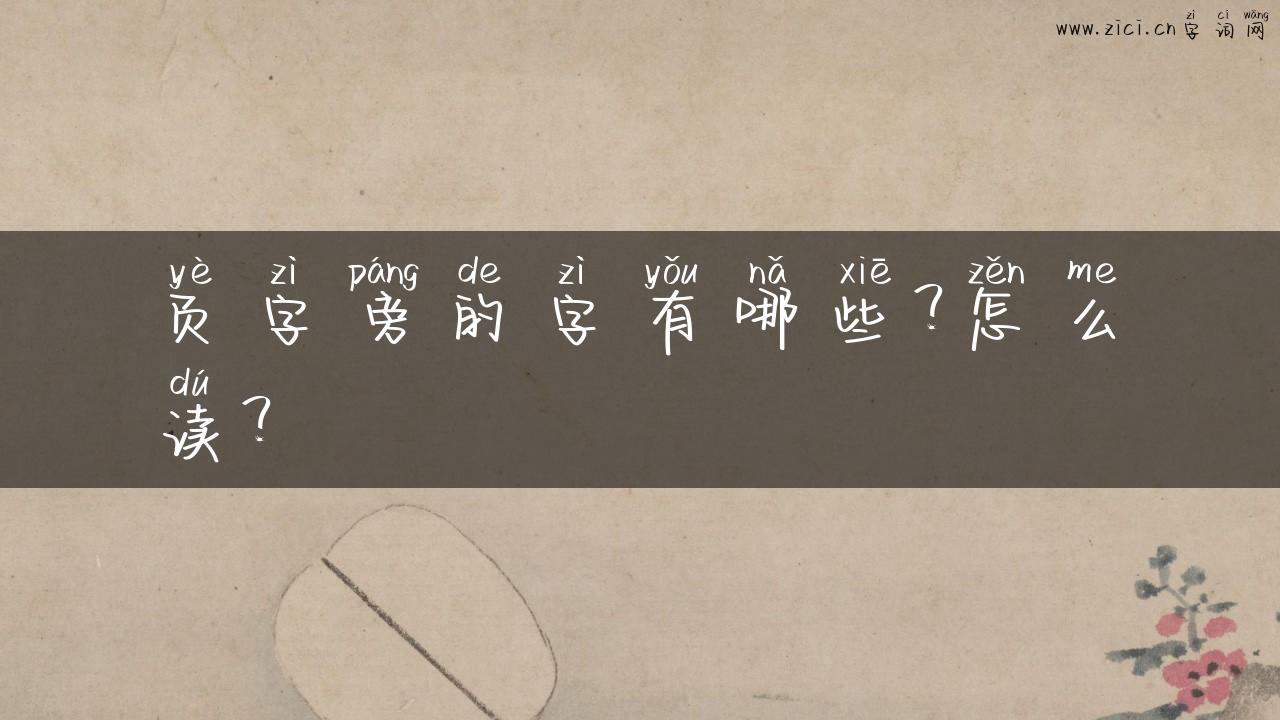 zì cí wǎng
www.zici.cn字词网
yè zì páng de zì yǒu nǎ xiē zěn me
页字旁的字有哪些?怎么
dú
读?